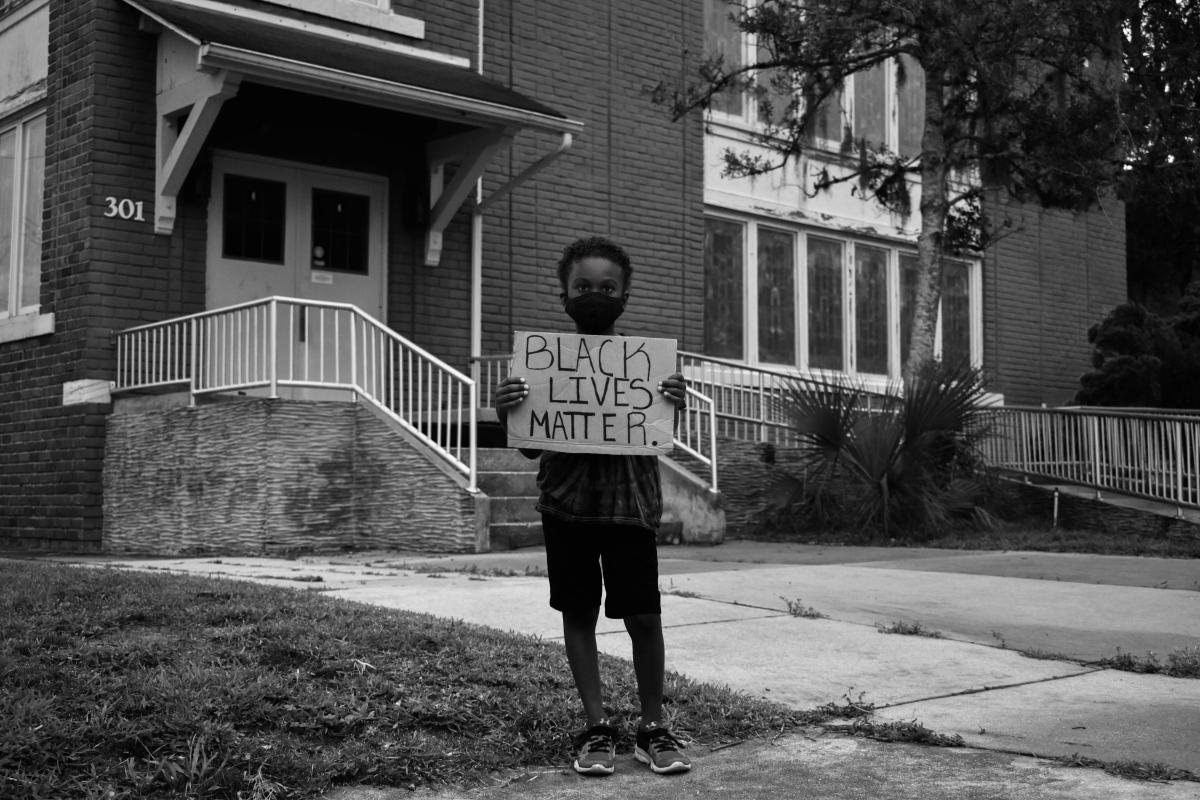 301
BLACK
LIVES
MATTER.